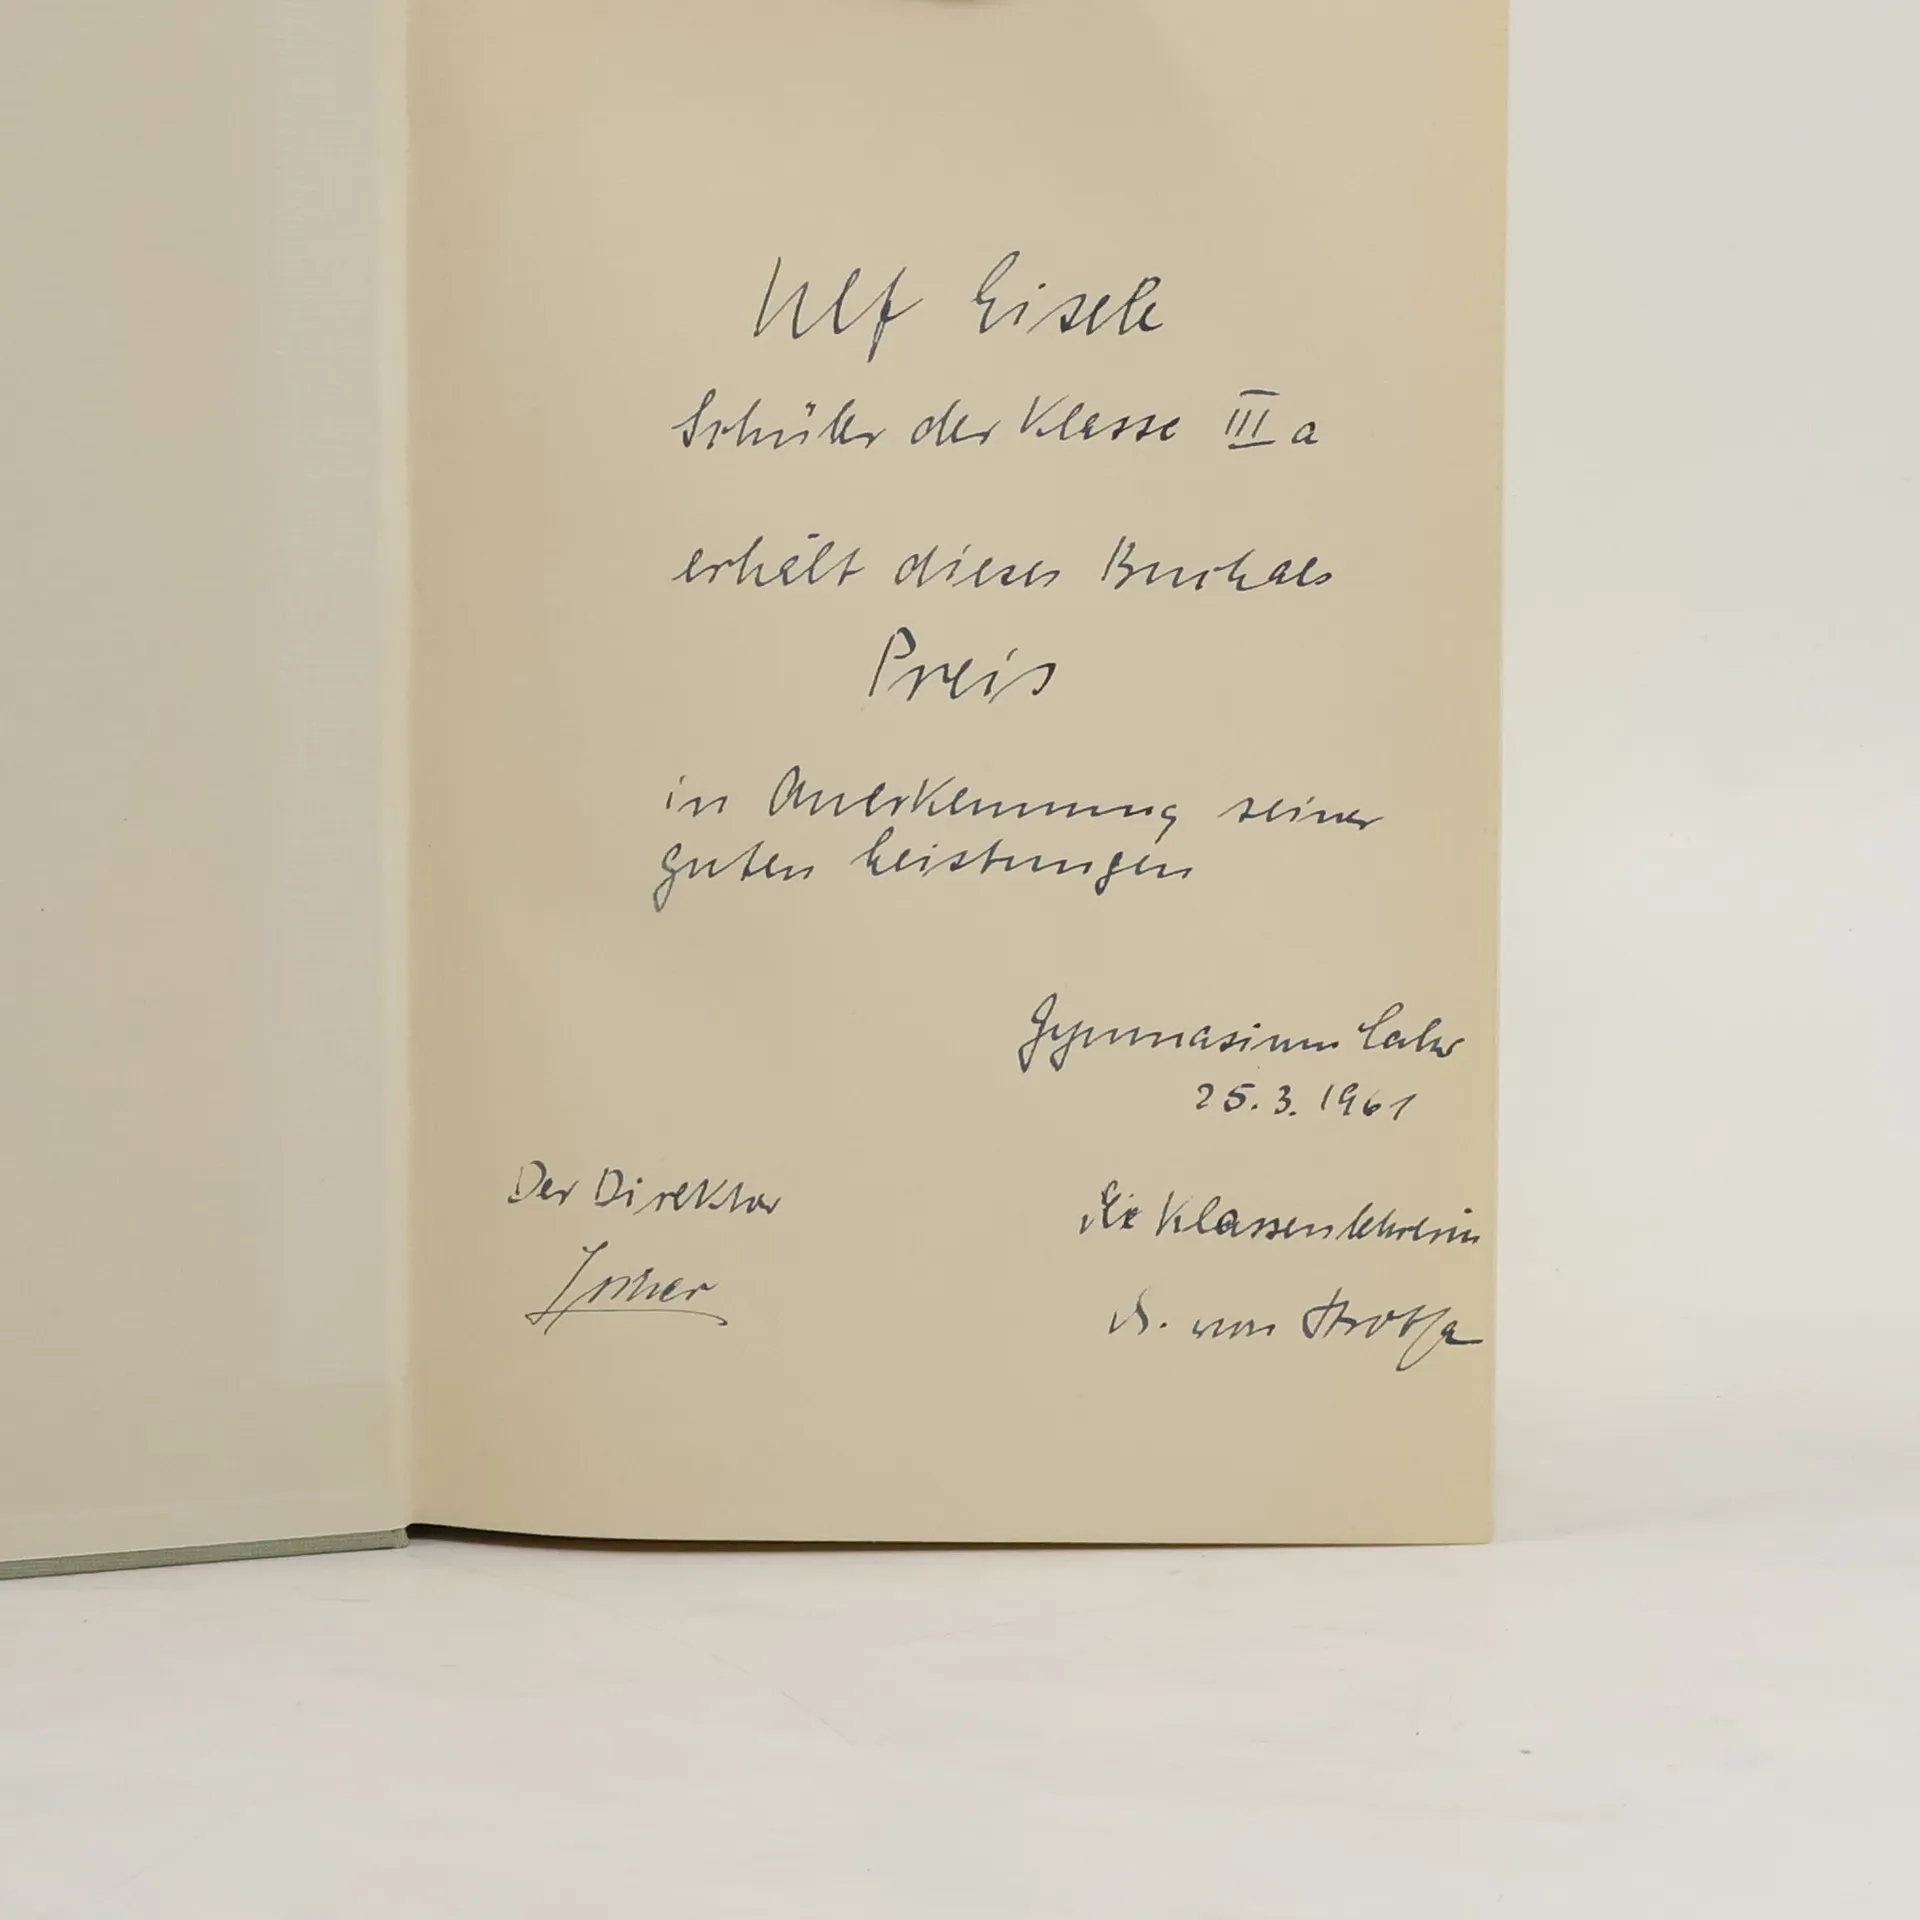 Ulf Eisele
Schüler der Klasse III a
erhält dieses Buch als
Preis
in Anerkennung seiner
guten Leistungen
Gymnasium Lahr
25.3.1961
Der Direktor
die Klassenlehrerin
von Trotha